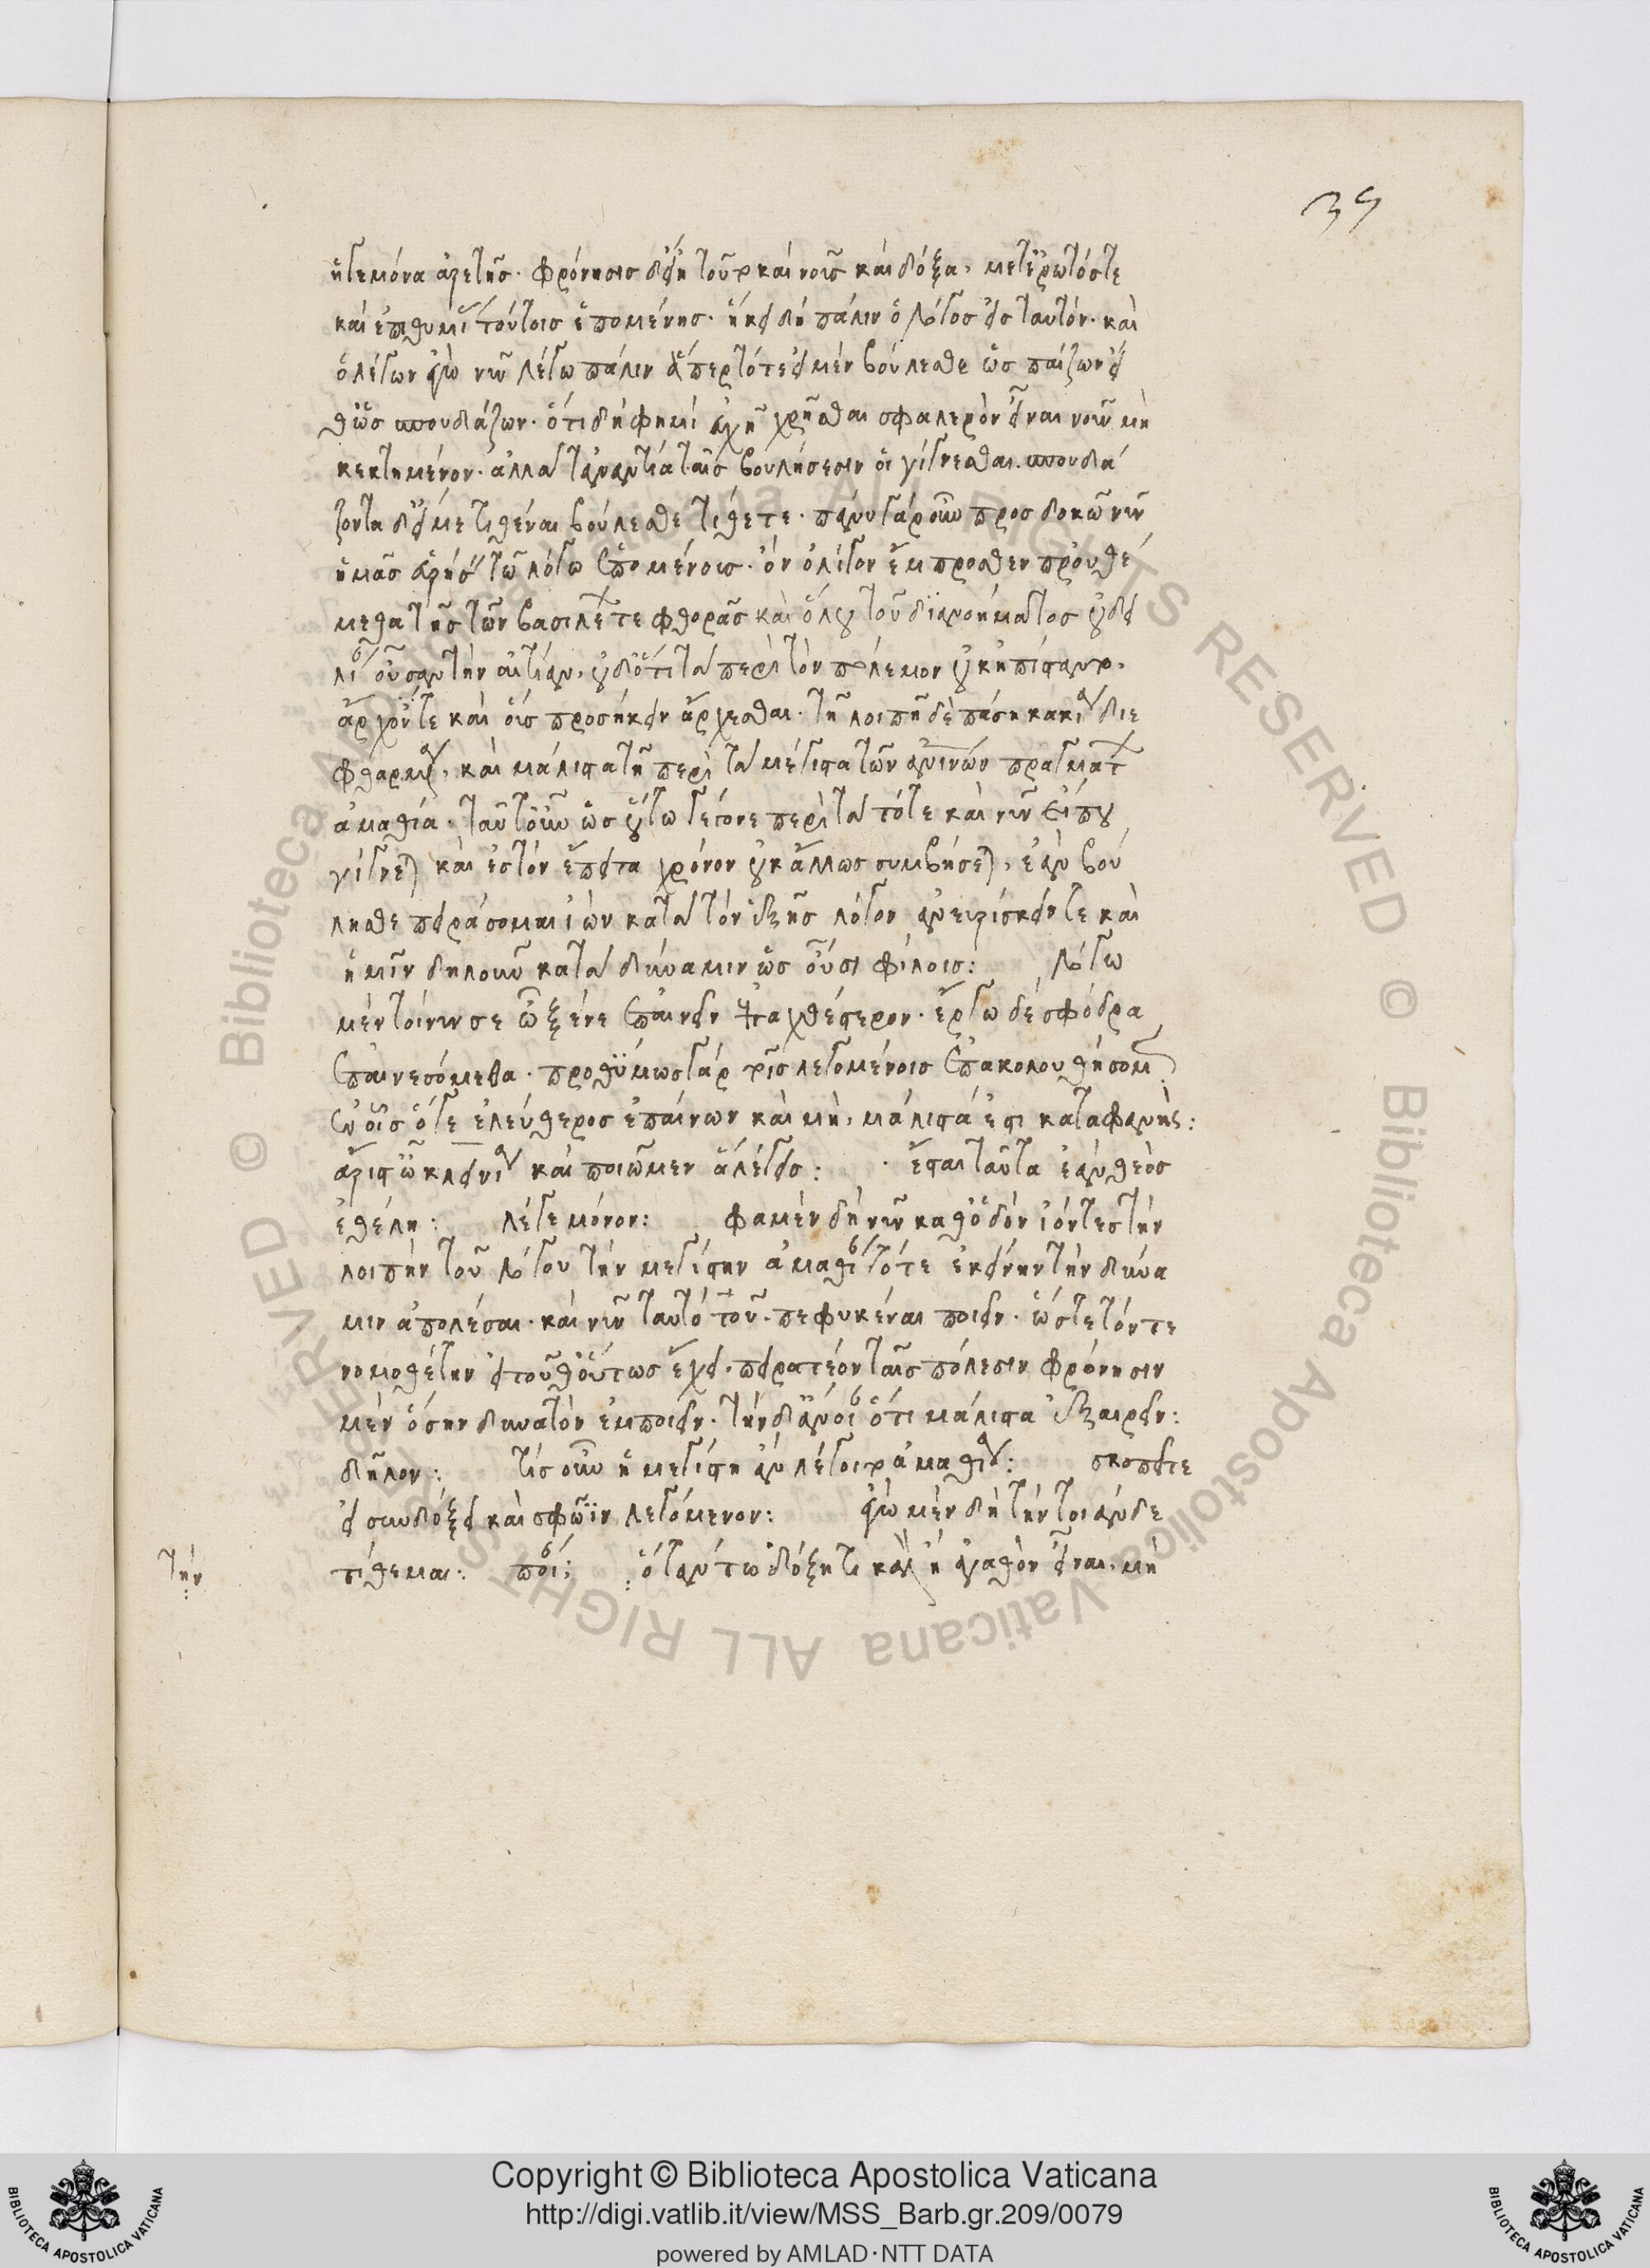 39
ἡγεμόνα ἀρετῆς· φρόνησις δ' εἴη τοῦτο καὶ νοῦς καὶ δόξα, μετ' ἔρωτός τε
καὶ ἐπιθυμίας τούτοις ἑπομένης· ἥκει δὴ πάλιν ὁ λόγος εἰς ταυτόν· καὶ
ὁ λέγων ἐγὼ νῦν λέγω πάλιν ἅπερ τότε εἰ μὲν βούλεσθε ὡς παίζων εἰ
θ' ὡς σπουδάζων· ὅτι δή φημι εὐχῇ χρῆσθαι σφαλερὸν εἶναι νοῦν μὴ
κεκτημένον· ἀλλὰ τἀναντία ταῖς βουλήσεσιν οἱ γίγνεσθαι. σπουδά
ζοντα δ' εἴ με τιθέναι βούλεσθε τίθετε· πάνυ γὰρ οὖν προσδοκῶ νῦν
ἡμᾶς εὑρήσειν τῷ λόγῳ ἑπομένοις· ὃν ὀλίγον ἔμπροσθεν προυθέ
μεθα τῆς τῶν βασιλέων τε φθορᾶς καὶ ὅλου τοῦ διανοήματος οὐ δει
λίαν οὖσαν τὴν αἰτίαν, οὐδ' ὅτι τὰ περὶ τὸν πόλεμον οὐκ ἠπίσταντο,
ἄρχοντές τε καὶ οἷς προσῆκεν ἄρχεσθαι· τῇ λοιπῇ δὲ πάσῃ κακίᾳ διε
φθαρμένα, καὶ μάλιστα τῇ περὶ τὰ μέγιστα τῶν ἀνθρωπίνων πραγμάτων
ἀμαθίᾳ· ταῦτ' οὖν ὡς οὕτω γέγονε περὶ τὰ τότε καὶ νῦν εἴ που
γίγνεται καὶ ἐς τὸν ἔπειτα χρόνον οὐκ ἄλλως συμβήσεται, ἐὰν βού
λησθε πειράσομαι ἰὼν κατὰ τὸν ἑξῆς λόγον ἀνευρίσκειν τε καὶ
ὑμῖν δηλοῦν κατὰ δύναμιν ὡς οὖσι φίλοις: λόγῳ
μὲν τοίνυν σε ὦ ξένε ἐπαινεῖν ἐπαχθέστερον· ἔργῳ δὲ σφόδρα
ἐπαινεσόμεθα· προθύμως γὰρ τοῖς λεγομένοις ἐπακολουθήσομεν
ἐν οἷς ὅ γε ἐλεύθερος ἐπαίνων καὶ μὴ, μάλιστά ἐστι καταφανής:
ἄριστ' ὦ κλεινία καὶ ποιῶμεν ἃ λέγεις: ἔσται ταῦτα ἐὰν θεὸς
ἐθέλῃ: λέγε μόνον: φαμὲν δὴ νῦν καθ' ὁδὸν ἰόντες τὴν
λοιπὴν τοῦ λόγου τὴν μεγίστην ἀμαθίαν τότε ἐκείνην τὴν δύνα
μιν ἀπολέσαι· καὶ νῦν ταυτὸ τοῦτο πεφυκέναι ποιεῖν· ὥστε τόν γε
νομοθέτην εἰ τοῦθ' οὕτως ἔχει. πειρατέον ταῖς πόλεσιν φρόνησιν
μὲν ὅσην δυνατὸν ἐμποιεῖν· τὴν δ' ἄνοιαν ὅτι μάλιστα ἐξαιρεῖν:
δῆλον: τίς οὖν ἡ μεγίστη ἂν λέγοιτο ἀμαθία: σκοπεῖτε
εἰ συνδόξει καὶ σφῷϊν λεγόμενον: ἐγὼ μὲν δὴ τὴν τοιάνδε
τίθεμαι: ποίαν; ὅταν τῳ δόξῃ τι καλὸν ἢ ἀγαθὸν εἶναι, μὴ
τὴν
Copyright © Biblioteca Apostolica Vaticana
http://digi.vatlib.it/view/MSS_Barb.gr.209/0079
powered by AMLAD·NTT DATA
BIBLIOTECA APOSTOLICA VATICANA
BIBLIOTECA APOSTOLICA VATICANA
© Biblioteca Apostolica Vaticana ALL RIGHTS RESERVED © Biblioteca Apostolica Vaticana ALL RIGHTS RESERVED